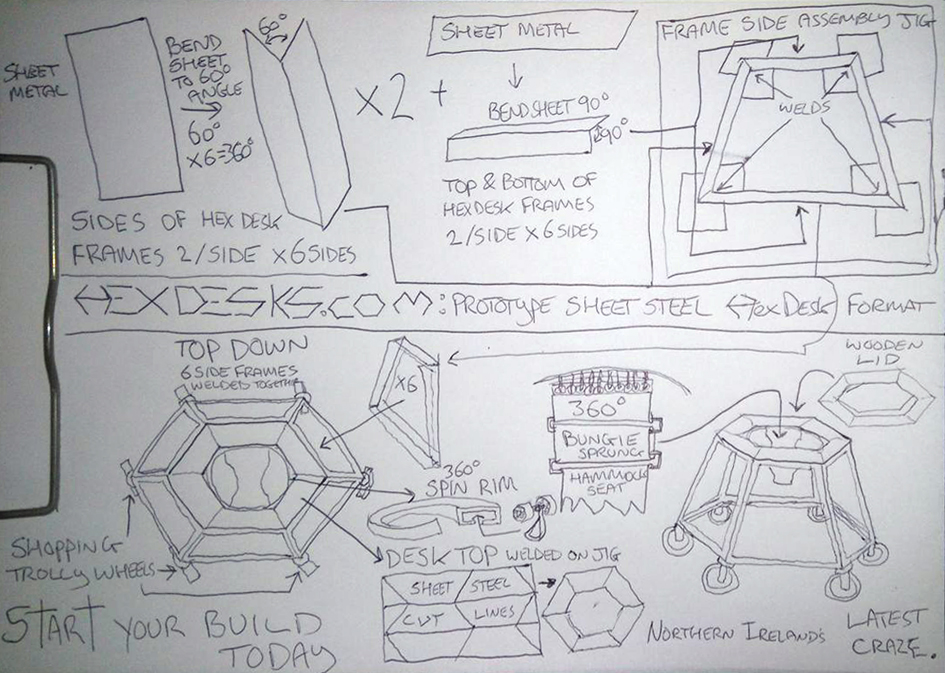 SHEET
METAL
BEND
SHEET
TO 60°
ANGLE
60°
X6=360°
60°
X2 +
SIDES OF HEX DESK
FRAMES 2/SIDE X6 SIDES
SHEET METAL
BEND SHEET 90°
90°
TOP & BOTTOM OF
HEXDESK FRAMES
2/SIDE X 6 SIDES
FRAME SIDE ASSEMBLY JIG
WELDS
HEXDESKS.COM: PROTOTYPE SHEET STEEL HexDesk FORMAT
TOP DOWN
6 SIDE FRAMES
WELDED TOGETHER
X6
360°
SPIN RIM
SHOPPING
TROLLY WHEELS
START YOUR BUILD
TODAY
360°
BUNGIE
SPRUNG
HAMMOCK
SEAT
WOODEN
LID
DESK TOP WELDED ON JIG
SHEET STEEL
CUT LINES
NORTHERN IRELAND'S
LATEST
CRAZE.